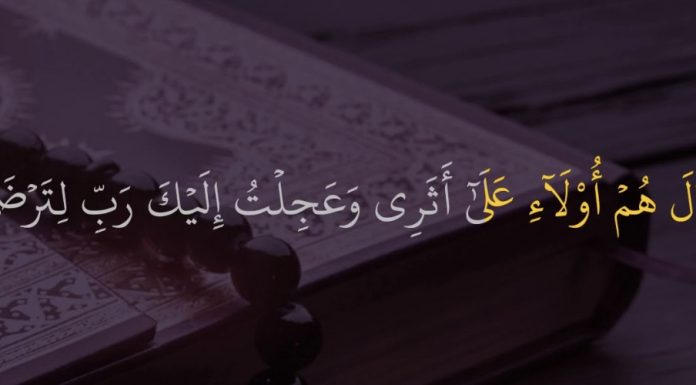 لَ هُمۡ أُوْلَآءِ عَلَىٰٓ أَثَرِى وَعَجِلۡتُ إِلَيۡكَ رَبِّ لِتَرۡضَ